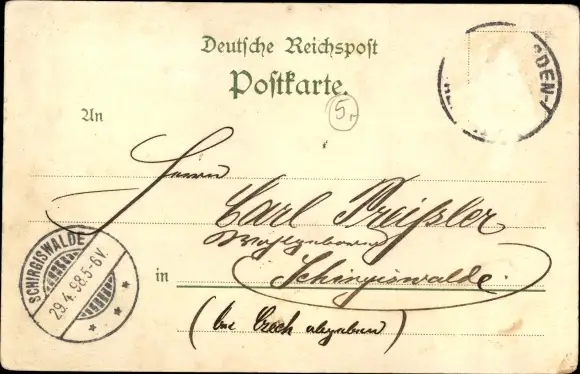 Deutsche Reichspost
Postkarte.
5,-
DEN-
An
Herrn
Carl Preißler
Wohlgeboren
SCHIRGISWALDE
29.4.98.5-6V.
in Schirgiswalde.
(bei abgeben)